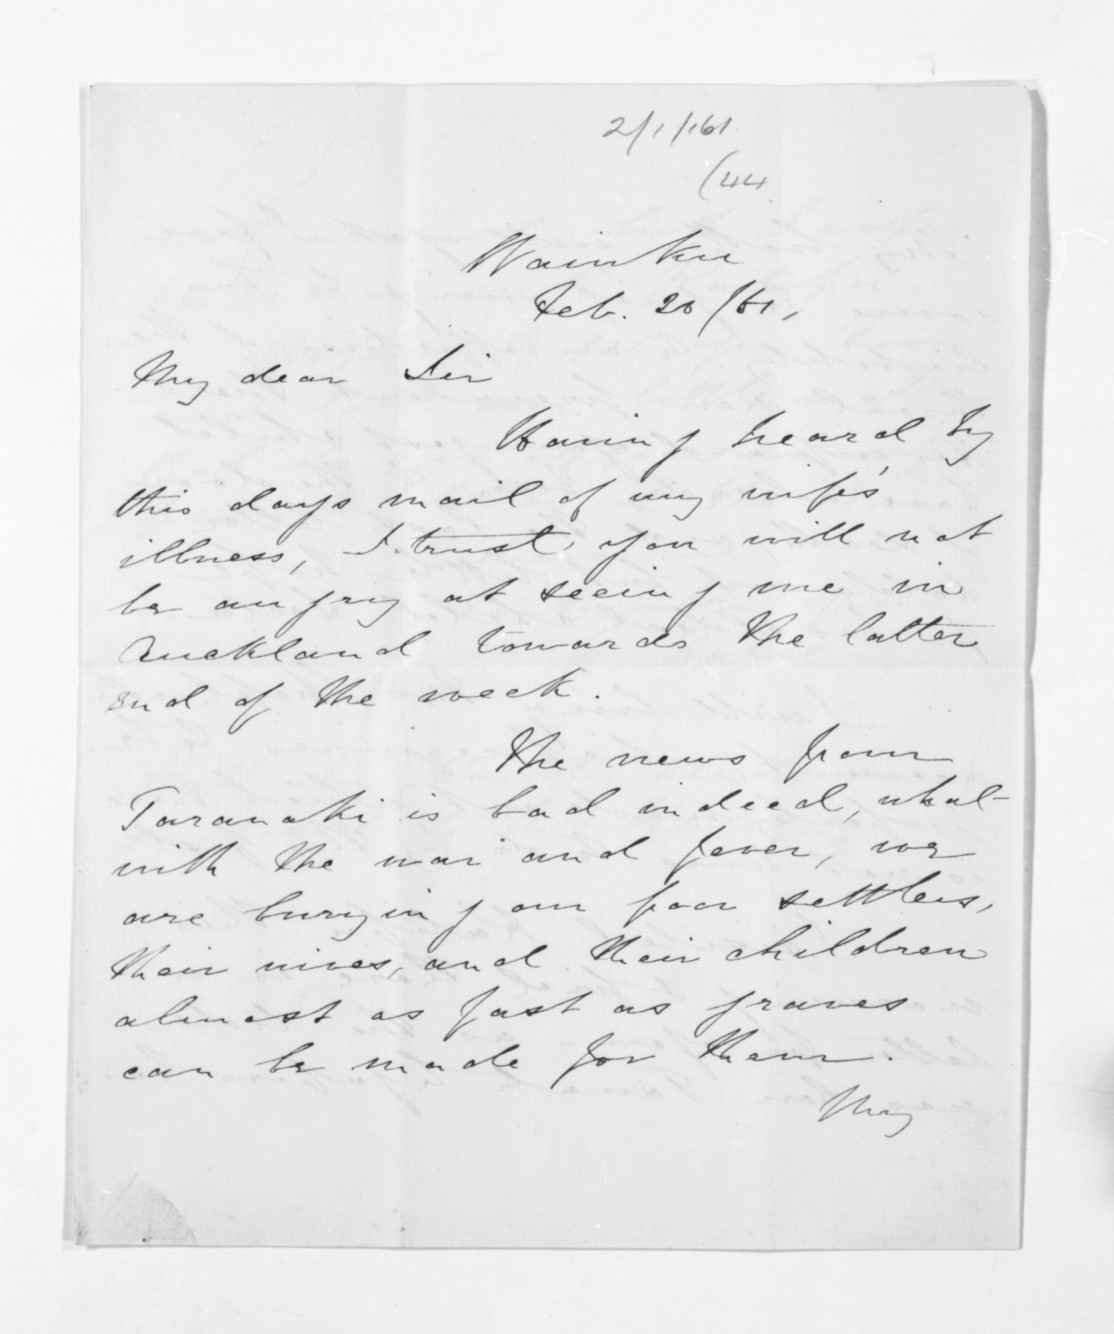 2/1/161
(44
Waiuku
Feb. 20/61,
My dear Sir
Having heard by
this days mail of my wife's
illness, I trust, you will not
be angry at seeing me in
Auckland towards the latter
end of the week.
The news from
Taranaki is bad indeed, what
with the war and fever, we
are burying our poor settlers,
their wives, and their children
almost as fast as graves
can be made for them.
May